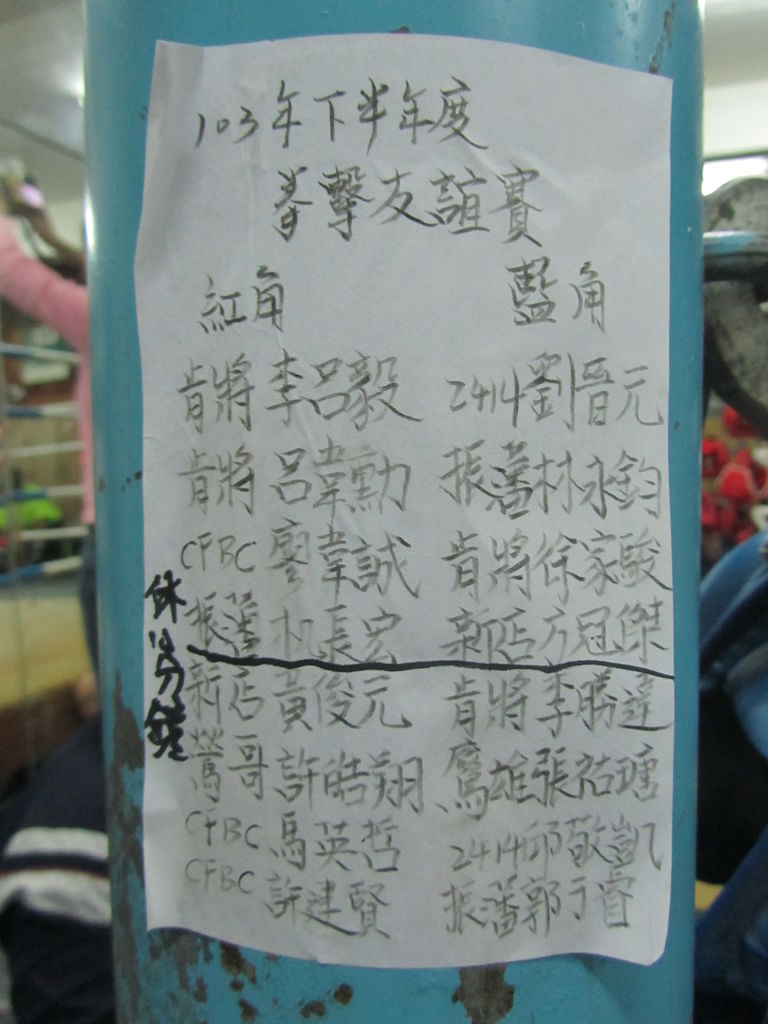 103年下半年度
拳擊友誼賽
紅角 藍角
肯將 李呂毅 2414劉晋元
肯將 呂韋勳 振藩林永鈞
CFBC 廖韋誠 肯將徐家駿
振藩 張宏 新店方冠傑
休10分鐘
新店 黃俊元 肯將李勝達
鶯哥 許皓翔 鷹雄張祐瑭
CFBC 馬英哲 2414邱敬凱
CFBC 許建賢 振藩郭于睿